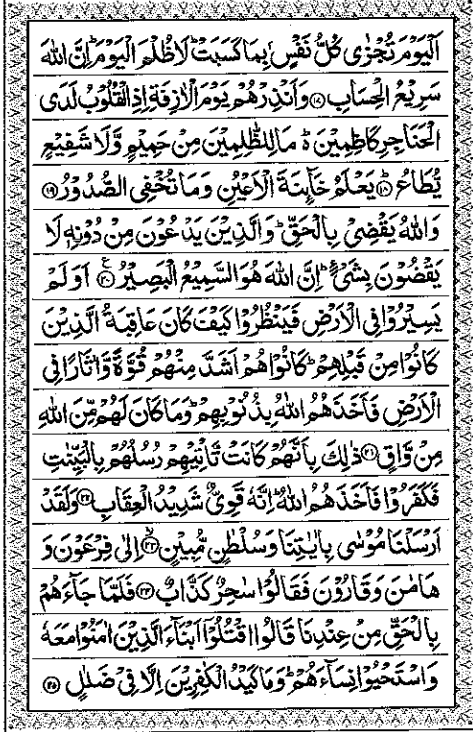 اَلْيَوْمَ تُجْزٰى كُلُّ نَفْسٍۭ بِمَا كَسَبَتْ ؕ لَا ظُلْمَ الْيَوْمَ ؕ اِنَّ اللّٰهَ
سَرِيْعُ الْحِسَابِ ﴿۱۷﴾ وَاَنْذِرْهُمْ يَوْمَ الْاٰزِفَةِ اِذِ الْقُلُوْبُ لَدَى
الْحَنَاجِرِ كَاظِمِيْنَ ؕ۬ مَا لِلظّٰلِمِيْنَ مِنْ حَمِيْمٍ وَّلَا شَفِيْعٍ
يُّطَاعُ ؕ ﴿۱۸﴾ يَعْلَمُ خَآئِنَةَ الْاَعْيُنِ وَمَا تُخْفِى الصُّدُوْرُ ﴿۱۹﴾
وَاللّٰهُ يَقْضِىْ بِالْحَقِّ ؕ وَالَّذِيْنَ يَدْعُوْنَ مِنْ دُوْنِهٖ لَا
يَقْضُوْنَ بِشَىْءٍ ؕ اِنَّ اللّٰهَ هُوَ السَّمِيْعُ الْبَصِيْرُ ﴿۲۰﴾ ع اَوَلَمْ
يَسِيْرُوْا فِى الْاَرْضِ فَيَنْظُرُوْا كَيْفَ كَانَ عَاقِبَةُ الَّذِيْنَ
كَانُوْا مِنْ قَبْلِهِمْ ؕ كَانُوْا هُمْ اَشَدَّ مِنْهُمْ قُوَّةً وَّاٰثَارًا فِى
الْاَرْضِ فَاَخَذَهُمُ اللّٰهُ بِذُنُوْبِهِمْ ؕ وَمَا كَانَ لَهُمْ مِّنَ اللّٰهِ
مِنْ وَّاقٍ ﴿۲۱﴾ ذٰلِكَ بِاَنَّهُمْ كَانَتْ تَّاْتِيْهِمْ رُسُلُهُمْ بِالْبَيِّنٰتِ
فَكَفَرُوْا فَاَخَذَهُمُ اللّٰهُ ؕ اِنَّهٗ قَوِىٌّ شَدِيْدُ الْعِقَابِ ﴿۲۲﴾ وَلَقَدْ
اَرْسَلْنَا مُوْسٰى بِاٰيٰتِنَا وَسُلْطٰنٍ مُّبِيْنٍ ۙ ﴿۲۳﴾ اِلٰى فِرْعَوْنَ وَ
هَامٰنَ وَقَارُوْنَ فَقَالُوْا سٰحِرٌ كَذَّابٌ ﴿۲۴﴾ فَلَمَّا جَآءَهُمْ
بِالْحَقِّ مِنْ عِنْدِنَا قَالُوا اقْتُلُوْٓا اَبْنَآءَ الَّذِيْنَ اٰمَنُوْا مَعَهٗ
وَاسْتَحْيُوْا نِسَآءَهُمْ ؕ وَمَا كَيْدُ الْكٰفِرِيْنَ اِلَّا فِىْ ضَلٰلٍ ﴿۲۵﴾